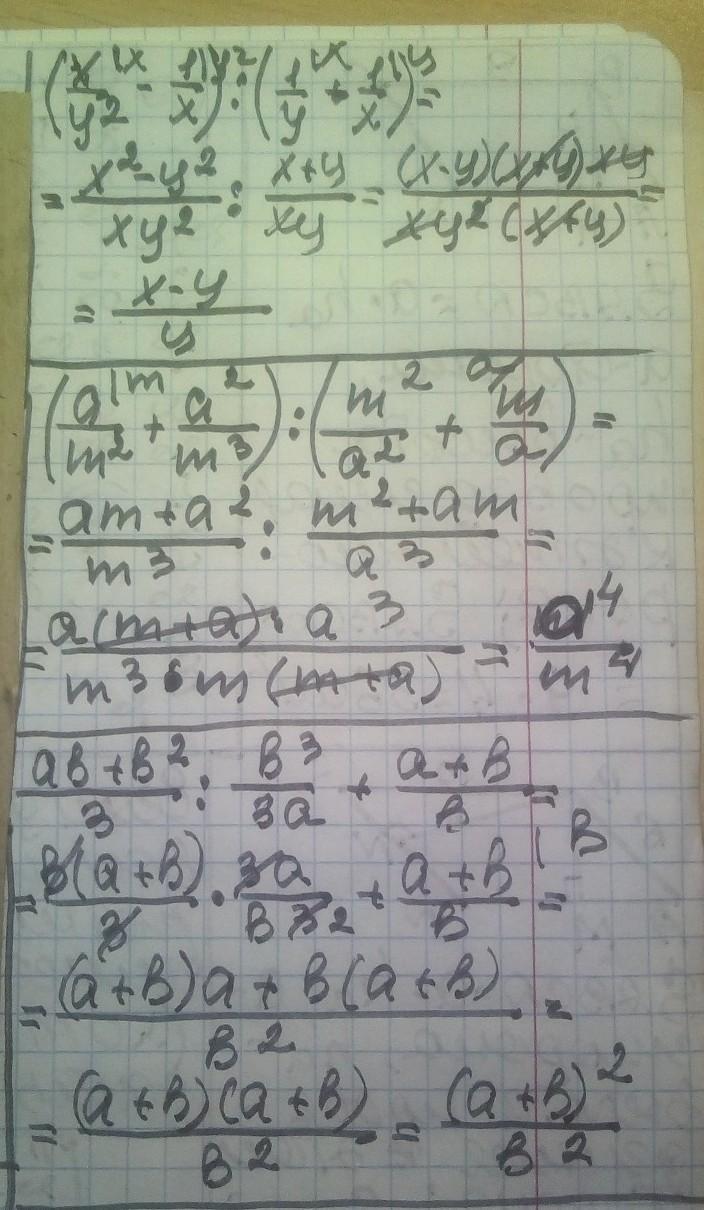 (x/y² |x - 1/x |y²) : (1/y |x + 1/x |y) =
= x²-y²/xy² : x+y/xy = (x-y)(x+y)xy/xy²(x+y) =
= x-y/y
(a/m² |m + a²/m³) : (m²/a² + a/ m/a) =
= am+a²/m³ : m²+am/a³ =
= a(m+a)·a³/m³·m(m+a) = a⁴/m⁴
ab+b²/3 : b³/3a + a+b/b =
= b(a+b)/3 · 3a/b³ ² + a+b/b |b =
= (a+b)a+b(a+b)/b² =
= (a+b)(a+b)/b² = (a+b)²/b²